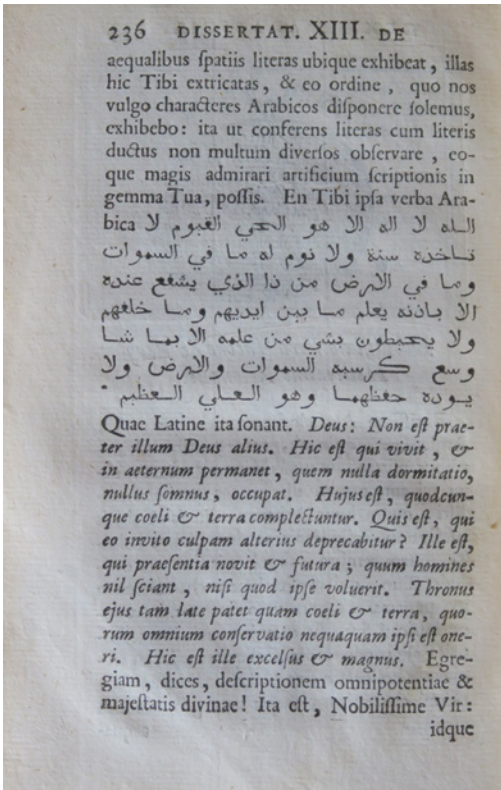 236 DISSERTAT. XIII. DE
aequalibus ſpatiis literas ubique exhibeat, illas
hic Tibi extricatas, & eo ordine, quo nos
vulgo characteres Arabicos diſponere ſolemus,
exhibebo: ita ut conferens literas cum literis
ductus non multum diverſos obſervare, eo-
que magis admirari artificium ſcriptionis in
gemma Tua, poſſis. En Tibi ipſa verba Ara-
bica الله لا اله الا هو الحي القيوم لا
تاخذه سنة ولا نوم له ما في السموات
وما في الارض من ذا الذي يشفع عنده
الا باذنه يعلم ما بين ايديهم وما خلفهم
ولا يحيطون بشي من علمه الا بما شا
وسع كرسيه السموات والارض ولا
يوده حفظهما وهو العلي العظيم
Quae Latine ita ſonant. Deus: Non eſt prae-
ter illum Deus alius. Hic eſt qui vivit, &
in aeternum permanet, quem nulla dormitatio,
nullus ſomnus, occupat. Hujus eſt, quodcun-
que coeli & terra complectuntur. Quis eſt, qui
eo invito culpam alterius deprecabitur? Ille eſt,
qui praeſentia novit & futura; quum homines
nil ſciant, niſi quod ipſe voluerit. Thronus
ejus tam late patet quam coeli & terra, quo-
rum omnium conſervatio nequaquam ipſi eſt one-
ri. Hic eſt ille excelſus & magnus. Egre-
giam, dices, deſcriptionem omnipotentiae &
majeſtatis divinae! Ita eſt, Nobiliſſime Vir:
idque